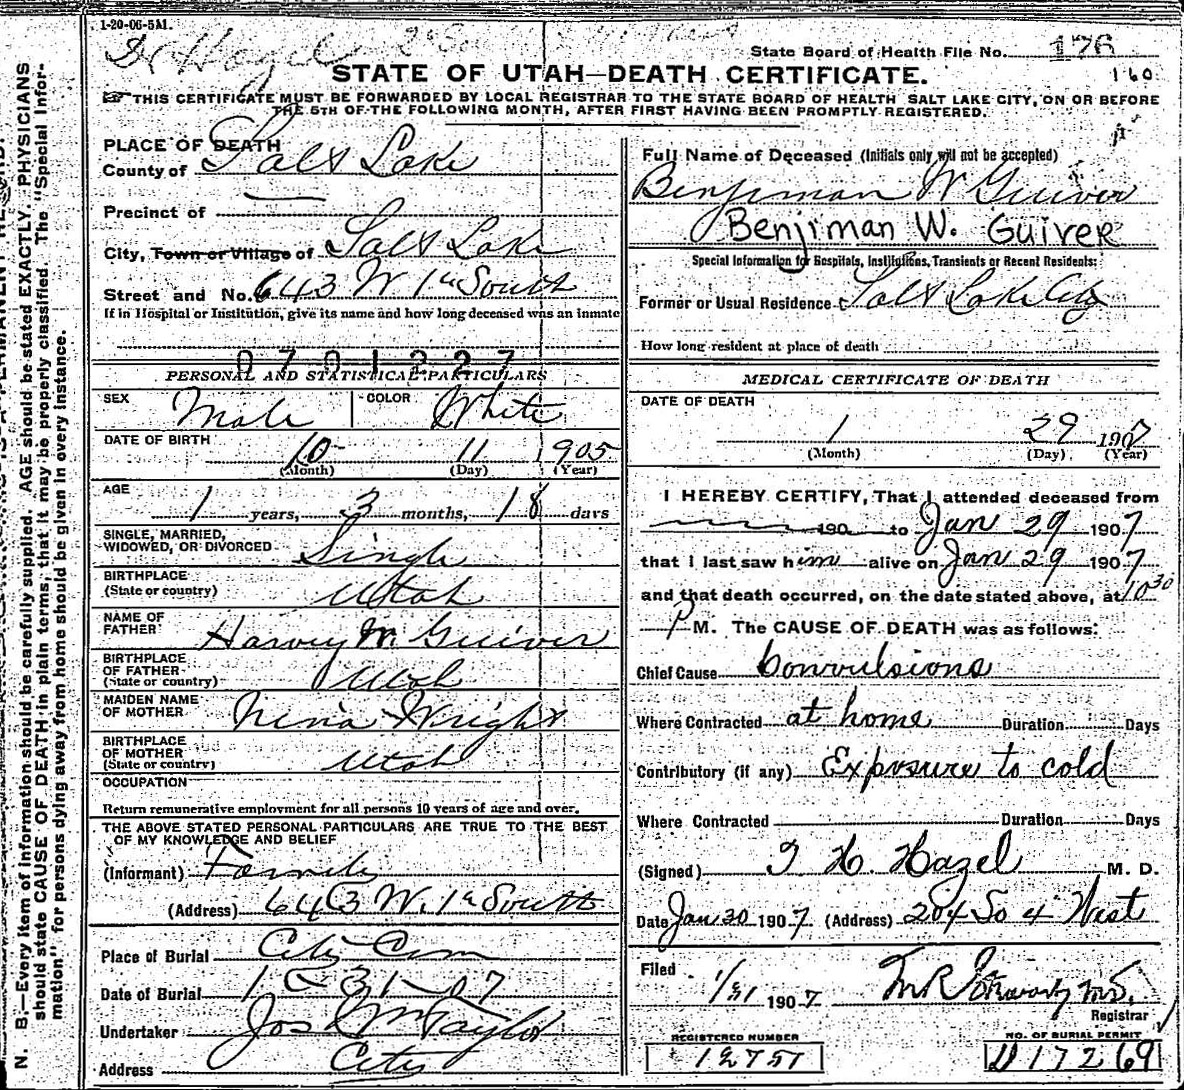 1-20-06-5M.
Dr Hazel
State Board of Health File No. 176
STATE OF UTAH—DEATH CERTIFICATE.
160
☞ THIS CERTIFICATE MUST BE FORWARDED BY LOCAL REGISTRAR TO THE STATE BOARD OF HEALTH SALT LAKE CITY, ON OR BEFORE
THE 5TH OF THE FOLLOWING MONTH, AFTER FIRST HAVING BEEN PROMPTLY REGISTERED.
PLACE OF DEATH
County of Salt Lake
Precinct of
City, Town or Village of Salt Lake
Street and No. 643 W 1st South
If in Hospital or Institution, give its name and how long deceased was an inmate
0701227
PERSONAL AND STATISTICAL PARTICULARS
SEX Male COLOR White
DATE OF BIRTH 10 11 1905
(Month) (Day) (Year)
AGE 1 years, 3 months, 18 days
SINGLE, MARRIED,
WIDOWED, OR DIVORCED Single
BIRTHPLACE
(State or country) Utah
NAME OF
FATHER Harvey M Guiver
BIRTHPLACE
OF FATHER
(State or country) Utah
MAIDEN NAME
OF MOTHER Nina Wright
BIRTHPLACE
OF MOTHER
(State or country) Utah
OCCUPATION
Return remunerative employment for all persons 10 years of age and over.
THE ABOVE STATED PERSONAL PARTICULARS ARE TRUE TO THE BEST
OF MY KNOWLEDGE AND BELIEF
(Informant) Family
(Address) 643 W. 1st South
Place of Burial City Cem
Date of Burial 1-31-07
Undertaker Jos Wm Taylor
Address City
Full Name of Deceased (Initials only will not be accepted)
Benjiman W Guiver
Benjiman W. Guiver
Special Information for Hospitals, Institutions, Transients or Recent Residents:
Former or Usual Residence Salt Lake City
How long resident at place of death
MEDICAL CERTIFICATE OF DEATH
DATE OF DEATH
1 29 1907
(Month) (Day) (Year)
I HEREBY CERTIFY, That I attended deceased from
190 to Jan 29 1907
that I last saw him alive on Jan 29 1907
and that death occurred, on the date stated above, at 10 30
P M. The CAUSE OF DEATH was as follows:
Chief Cause Convulsions
Where Contracted at home Duration Days
Contributory (if any) Exposure to cold
Where Contracted Duration Days
(Signed) T H. Hazel M. D.
Date Jan 30 1907 (Address) 204 So 4" West
Filed 1/31 1907
Registrar
REGISTERED NUMBER
12751
NO. OF BURIAL PERMIT
D 17269
N. B.—Every item of information should be carefully supplied. AGE should be stated EXACTLY. PHYSICIANS
should state CAUSE OF DEATH in plain terms, that it may be properly classified. The "Special Infor-
mation" for persons dying away from home should be given in every instance.